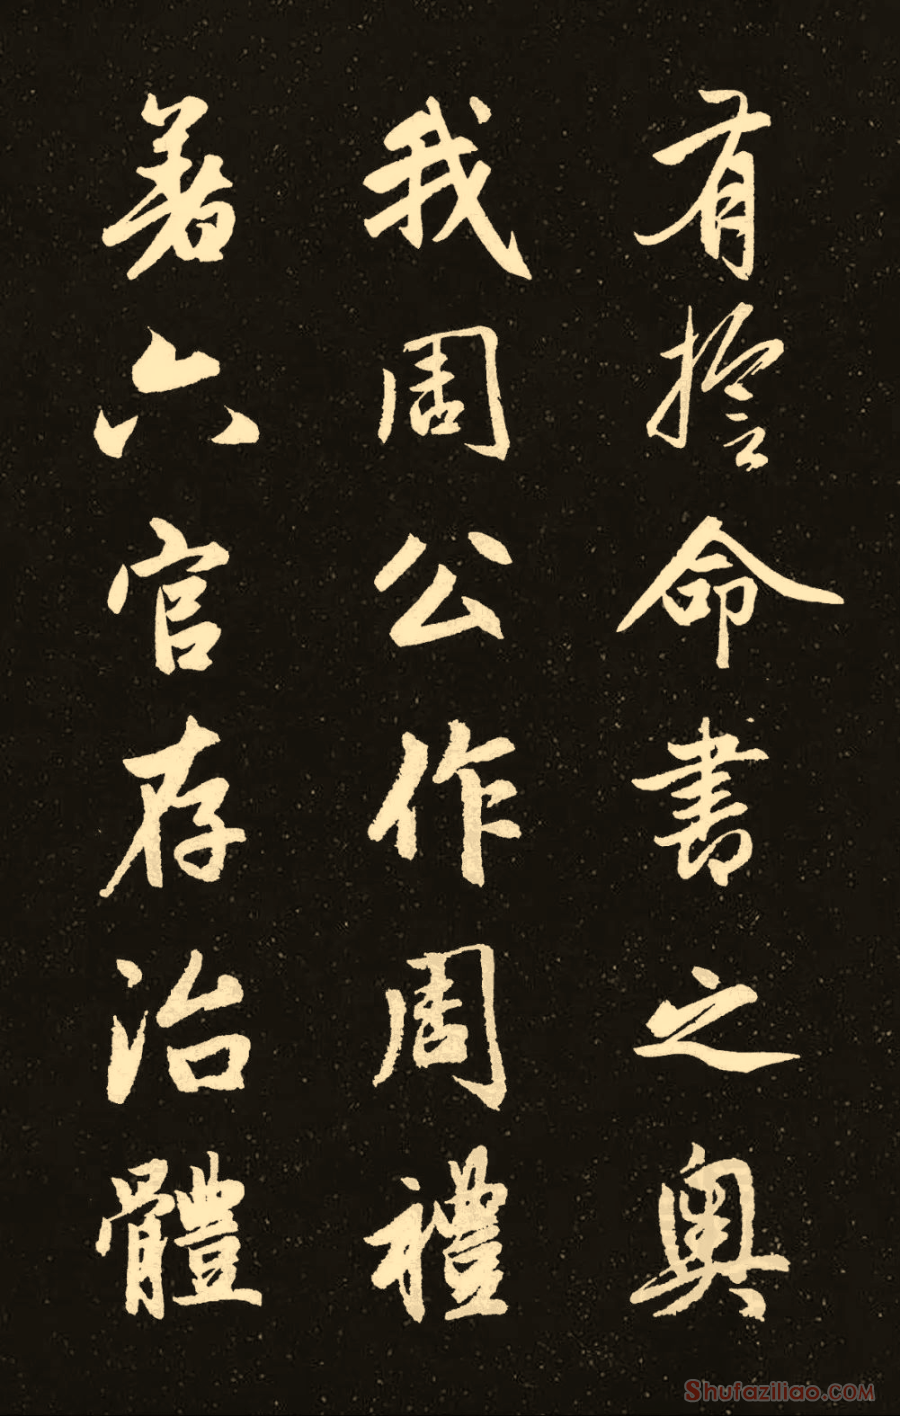 有誓命書之奥
我周公作周禮
著六官存治體
Shufaziliao.com